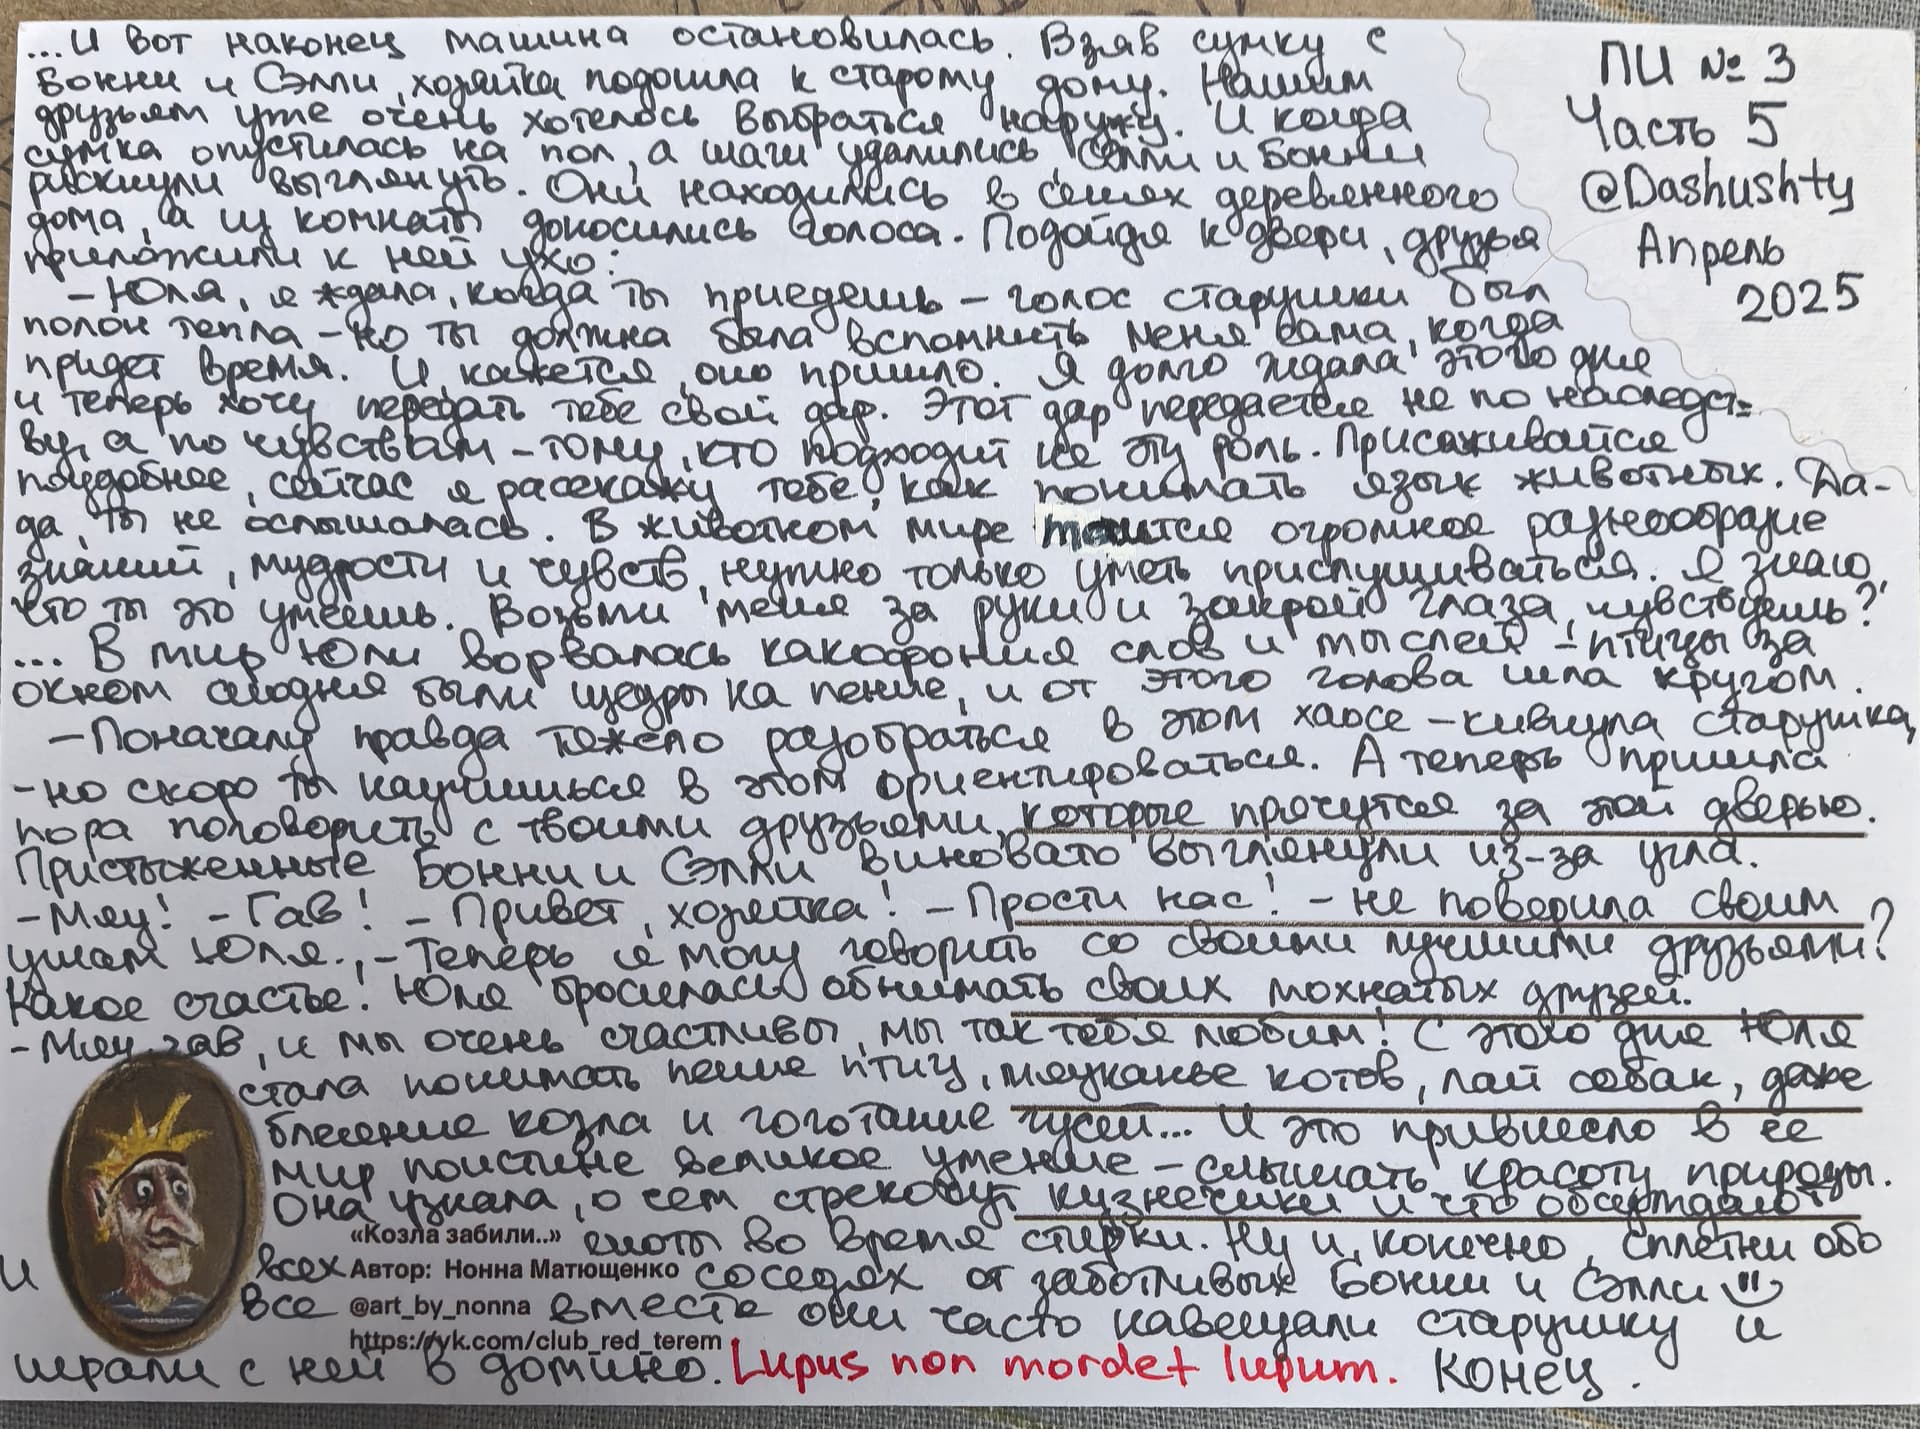 ...И вот наконец машина остановилась. Взяв сумку с
Бонни и Сэлли, хозяйка подошла к старому дому. Нашим
друзьям уже очень хотелось выбраться наружу. И когда
сумка опустилась на пол, а шаги удалились, Сэлли и Бонни
рискнули выглянуть. Они находились в сенях деревянного
дома, а из комнаты доносились голоса. Подойдя к двери, друзья
приложили к ней ухо:
- Юля, я ждала, когда ты приедешь - голос старушки был
полон тепла - но ты должна была вспомнить меня сама, когда
придет время. И, кажется, оно пришло. Я долго ждала этого дня
и теперь хочу передать тебе свой дар. Этот дар передается не по наследст=
ву, а по чувствам - тому, кто подходит на эту роль. Присаживайся
поудобнее, сейчас я расскажу тебе, как понимать язык животных. Да-
да, ты не ослышалась. В животном мире таится огромное разнообразие
знаний, мудрости и чувств, нужно только уметь прислушиваться. Я знаю,
что ты это умеешь. Возьми меня за руки и закрой глаза, чувствуешь?
... В мир Юли ворвалась какофония слов и мыслей - птицы за
окном сегодня были щедры на пение, и от этого голова шла кругом.
- Поначалу правда тяжело разобраться в этом хаосе - кивнула старушка,
- но скоро ты научишься в этом ориентироваться. А теперь пришла
пора поговорить с твоими друзьями, которые прячутся за этой дверью.
Пристыженные Бонни и Сэлли виновато выглянули из-за угла.
- Мяу! - Гав! - Привет, хозяйка! - Прости нас! - не поверила своим
ушам Юля., - Теперь я могу говорить со своими лучшими друзьями?
Какое счастье! Юля бросилась обнимать своих мохнатых друзей.
- Мяу, гав, и мы очень счастливы, мы так тебя любим! С этого дня Юля
стала понимать пение птиц, мяуканье котов, лай собак, даже
блеяние козла и гоготание гусей... И это привнесло в ее
мир поистине великое умение - слышать красоту природы.
Она узнала, о чем стрекочут кузнечики и что обсуждают
еноты во время стирки. Ну и, конечно, сплетни обо
всех соседях от заботливых Бонни и Сэлли
И все вместе они часто навещали старушку и
играли с ней в домино. Lupus non mordet lupum. Конец.
ПИ № 3
Часть 5
@Dashushty
Апрель
2025
«Козла забили..»
Автор: Нонна Матющенко
@art_by_nonna
https://vk.com/club_red_terem